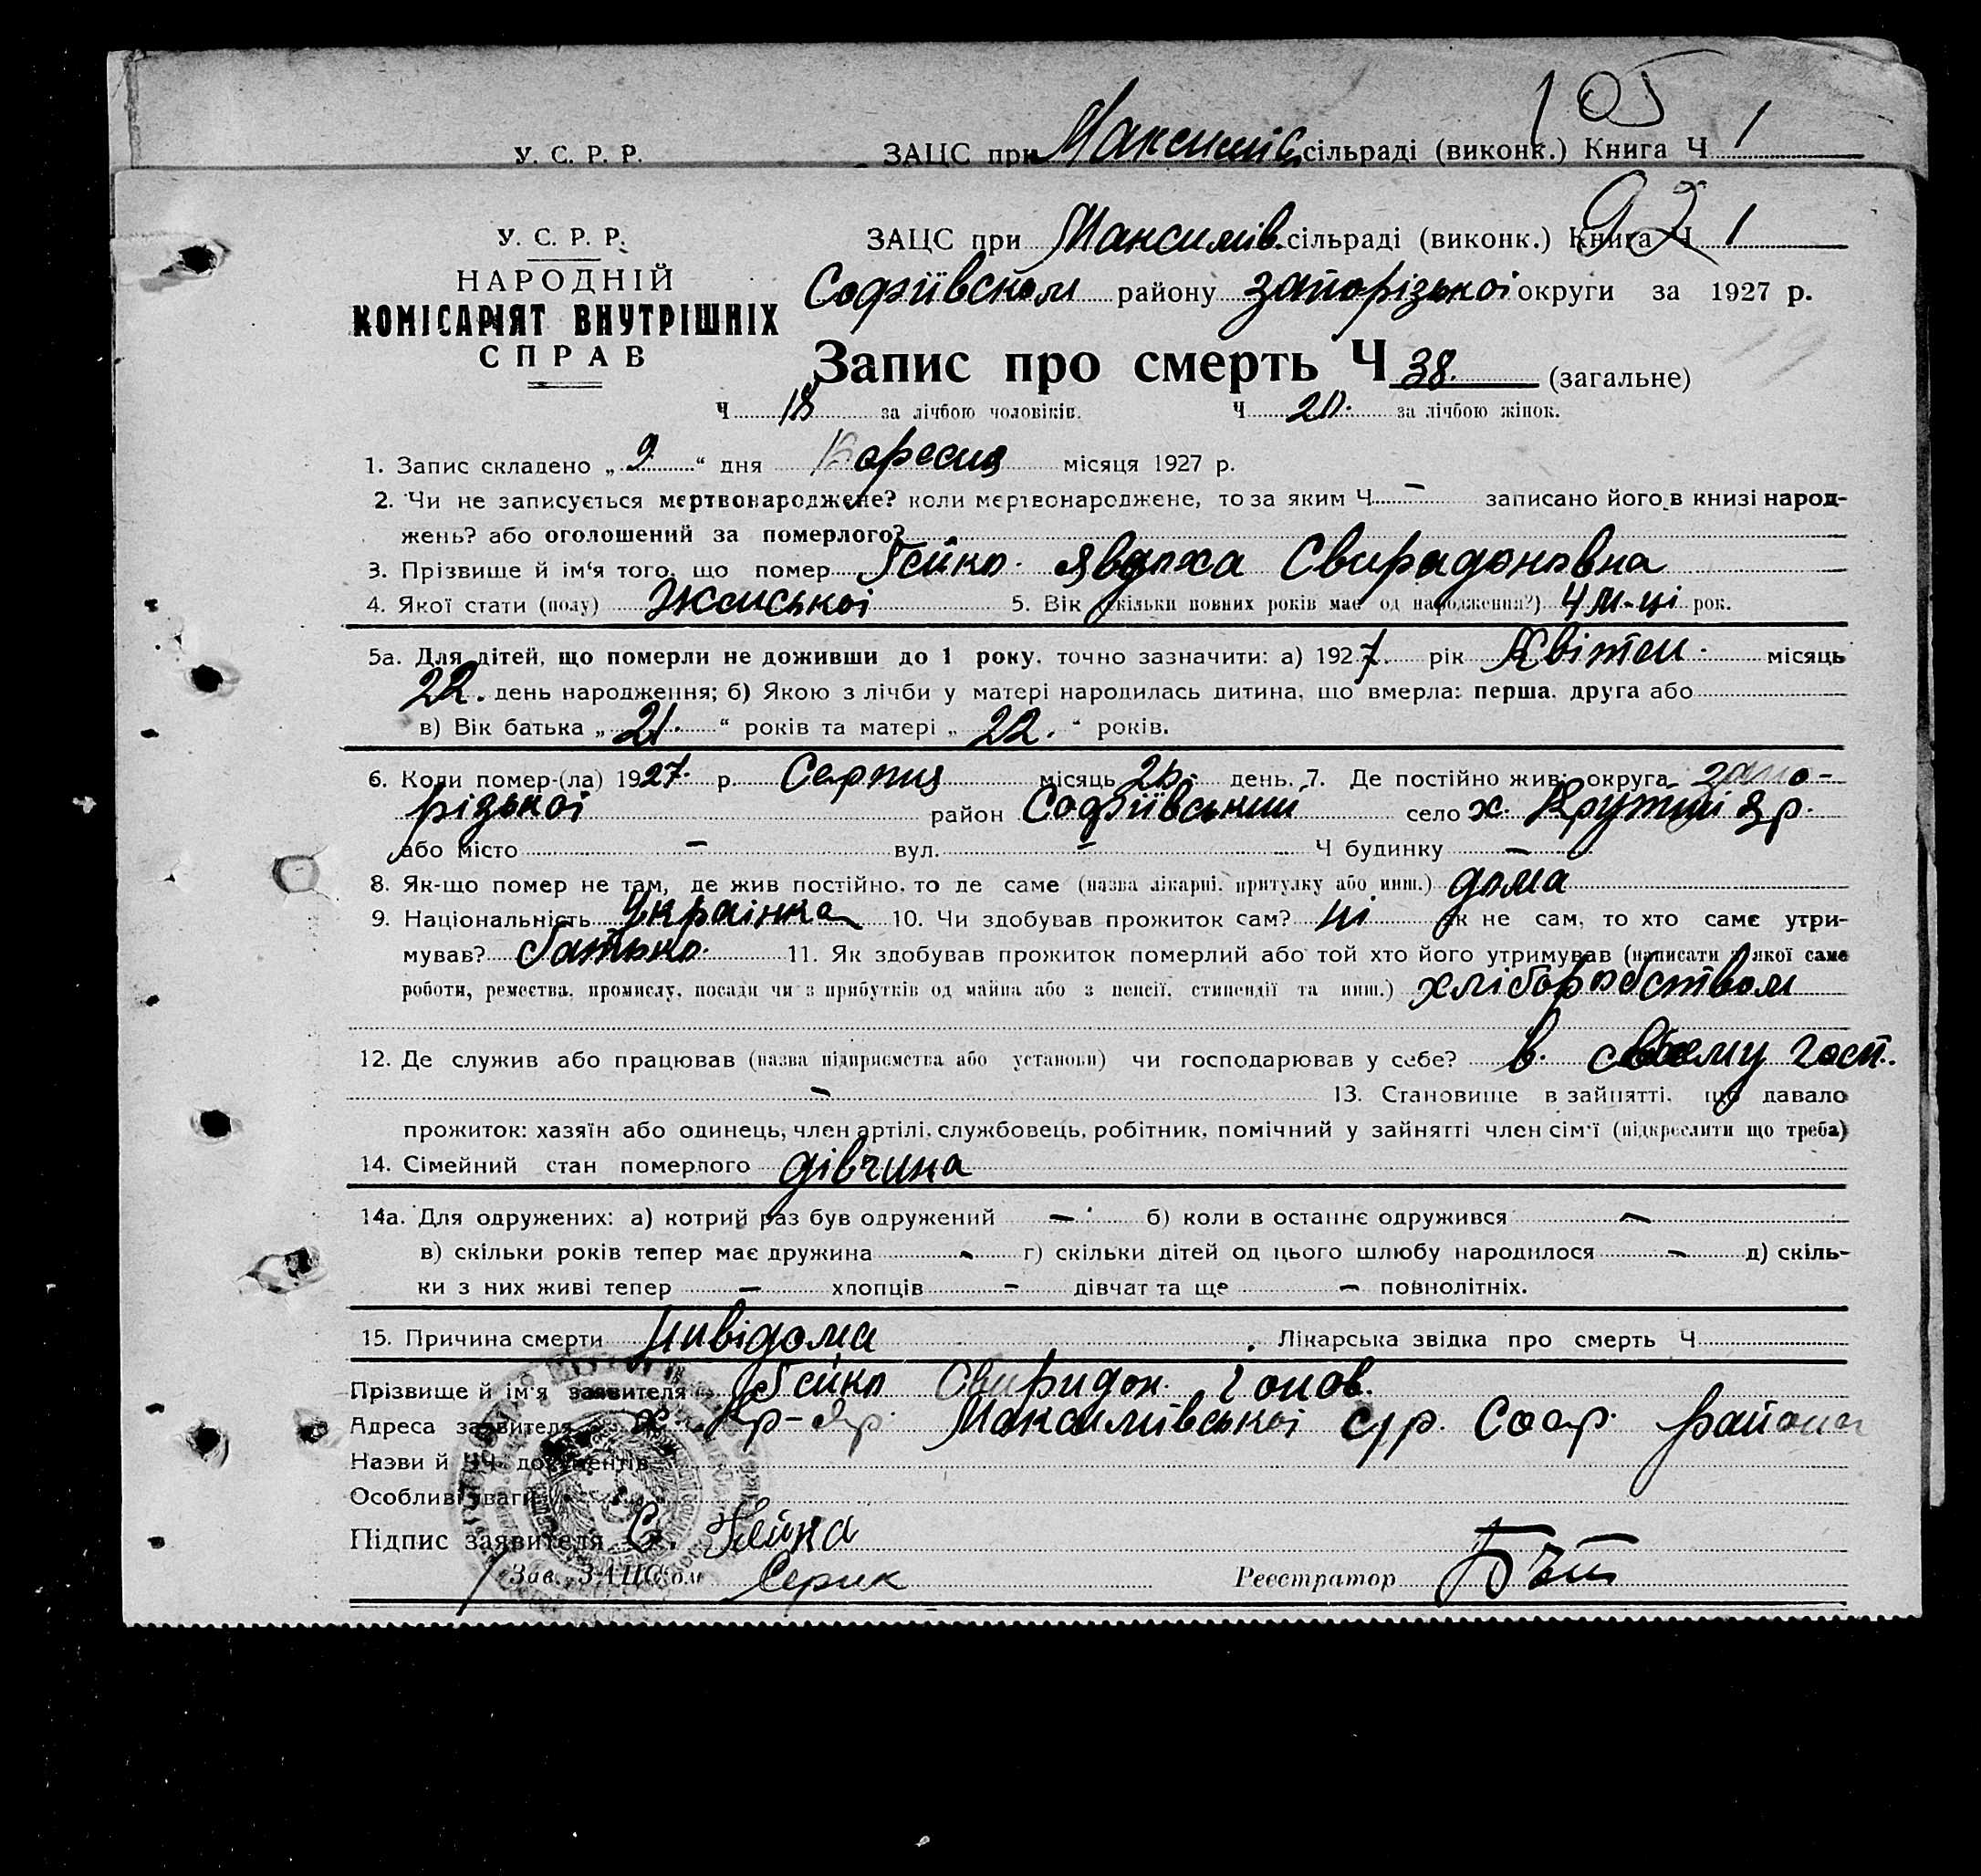 105
У. С. Р. Р. ЗАЦС при Максимів сільраді (виконк.) Книга Ч 1
92
У. С. Р. Р. ЗАЦС при Максимів. сільраді (виконк.) Книга Ч 1
НАРОДНІЙ Софіївском району запорізької округи за 1927 р.
КОМІСАРІЯТ ВНУТРІШНІХ
СПРАВ Запис про смерть Ч 38. (загальне)
Ч 18 за лічбою чоловіків. Ч 20. за лічбою жінок.
1. Запис складено „ 9 “ дня Вересня місяця 1927 р.
2. Чи не записується мертвонароджене? коли мертвонароджене, то за яким Ч – записано його в книзі народ-
жень? або оголошений за померлого?
3. Прізвище й ім‘я того, що помер Гейко Явдоха Свирадоновна
4. Якої стати (полу) Женської 5. Вік (скільки повних років має од народження?) 4 м-ці рок.
5а. Для дітей, що померли не доживши до 1 року, точно зазначити: а) 1927 рік Квітен місяць
22. день народження; б) Якою з лічби у матері народилась дитина, що вмерла: перша, друга або
в) Вік батька „ 21. “ років та матері „ 22. “ років.
6. Коли помер-(ла) 1927. р. Серпня місяць день. 7. Де постійно жив: округа запо-
різької район Софіївський село х. Крутий яр.
або місто – вул. – Ч будинку –
8. Як-що помер не там, де жив постійно, то де саме (назва лікарні, притулку або инш.) дома
9. Національність Українка 10. Чи здобував прожиток сам? ні як не сам, то хто саме утри-
мував? батько. 11. Як здобував прожиток померлий або той хто його утримував (написати з якої саме
роботи, ремества, промислу, посади чи з прибутків од майна або з пенсії, стипендії та инш.) хліборобством
12. Де служив або працював (назва підприємства або установи) чи господарював у себе? в. своему госп.
– 13. Становище в зайнятті, що давало
прожиток: хазяїн або одинець, член артілі, службовець, робітник, помічний у зайнятті член сім‘ї (підкреслити що треба)
14. Сімейний стан померлого дівчина
14а. Для одружених: а) котрий раз був одружений – б) коли в останнє одружився –
в) скільки років тепер має дружина – г) скільки дітей од цього шлюбу народилося – д) скіль-
ки з них живі тепер – хлопців – дівчат та ще – повнолітніх.
15. Причина смерти нивідома Лікарська звідка про смерть Ч
Прізвище й ім‘я заявителя Гейко Свиридон
Адреса заявителя х. Кр-Яр. Максимівської с/р. Соф. района
Назви й ЧЧ документів
Особливі уваги
Підпис заявителя С. Гейко
Зав. ЗАЦС‘ом Серик Реєстратор